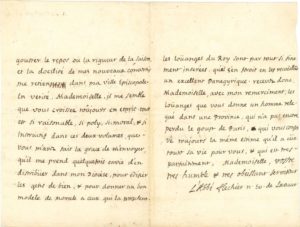 goutter le repos où la rigueur de la saison
et la docilité de mes nouveaux convertis
me retiennent dans ma ville Episcopale.
En verité, Mademoiselle, il me semble
que vous croissez toujours en esprit, tout
est si raisonnable, si poly, si moral, & si
instructif dans ces deux volumes, que
vous m'avez fait la grace de m'envoyer,
qu'il me prend quelquefois envie d'en
distribuer dans mon Diocese, pour édifier
les gens de bien, & pour donner un bon
modele de morale à ceux qui la
les louanges du Roy sont par tout si fine
ment que s'en feroit en les
un excellent Panegyrique. recevez donc,
Mademoiselle avec mon remerciment, les
louanges que vous donne un homme relegué
dans une Province, qui n'a pas encore
perdu le goust de Paris, qui vous
toujours la mesme estime qu'il a eüe
toute sa vie pour vous, & qui est tres-
Mademoiselle, votre
tres humble & tres obeissant serviteur
L'abbé Flechier n. Ev. de Lavaur